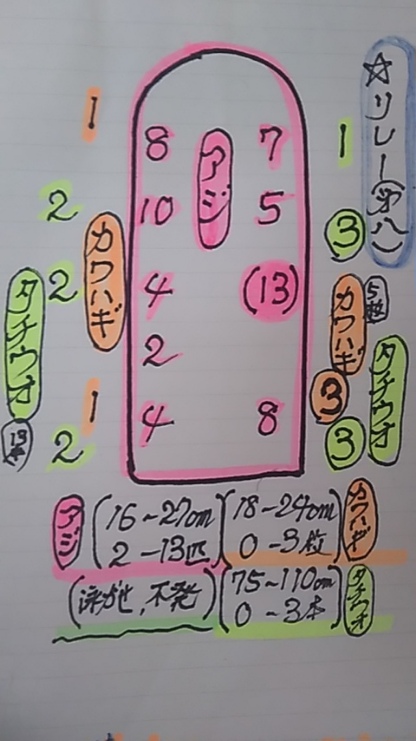 ☆リレー(第八)
1
8
アジ
7
1
2
10
5
3
カワハギ
2
4
(13)
カワハギ
5枚
タチウオ
2
3
タチウオ
1
4
8
3
13本
2
アジ (16～27cm 2－13匹) (18－24cm 0－3枚) カワハギ
(泳がせ、不発) (75－110cm 0－3本) タチウオ